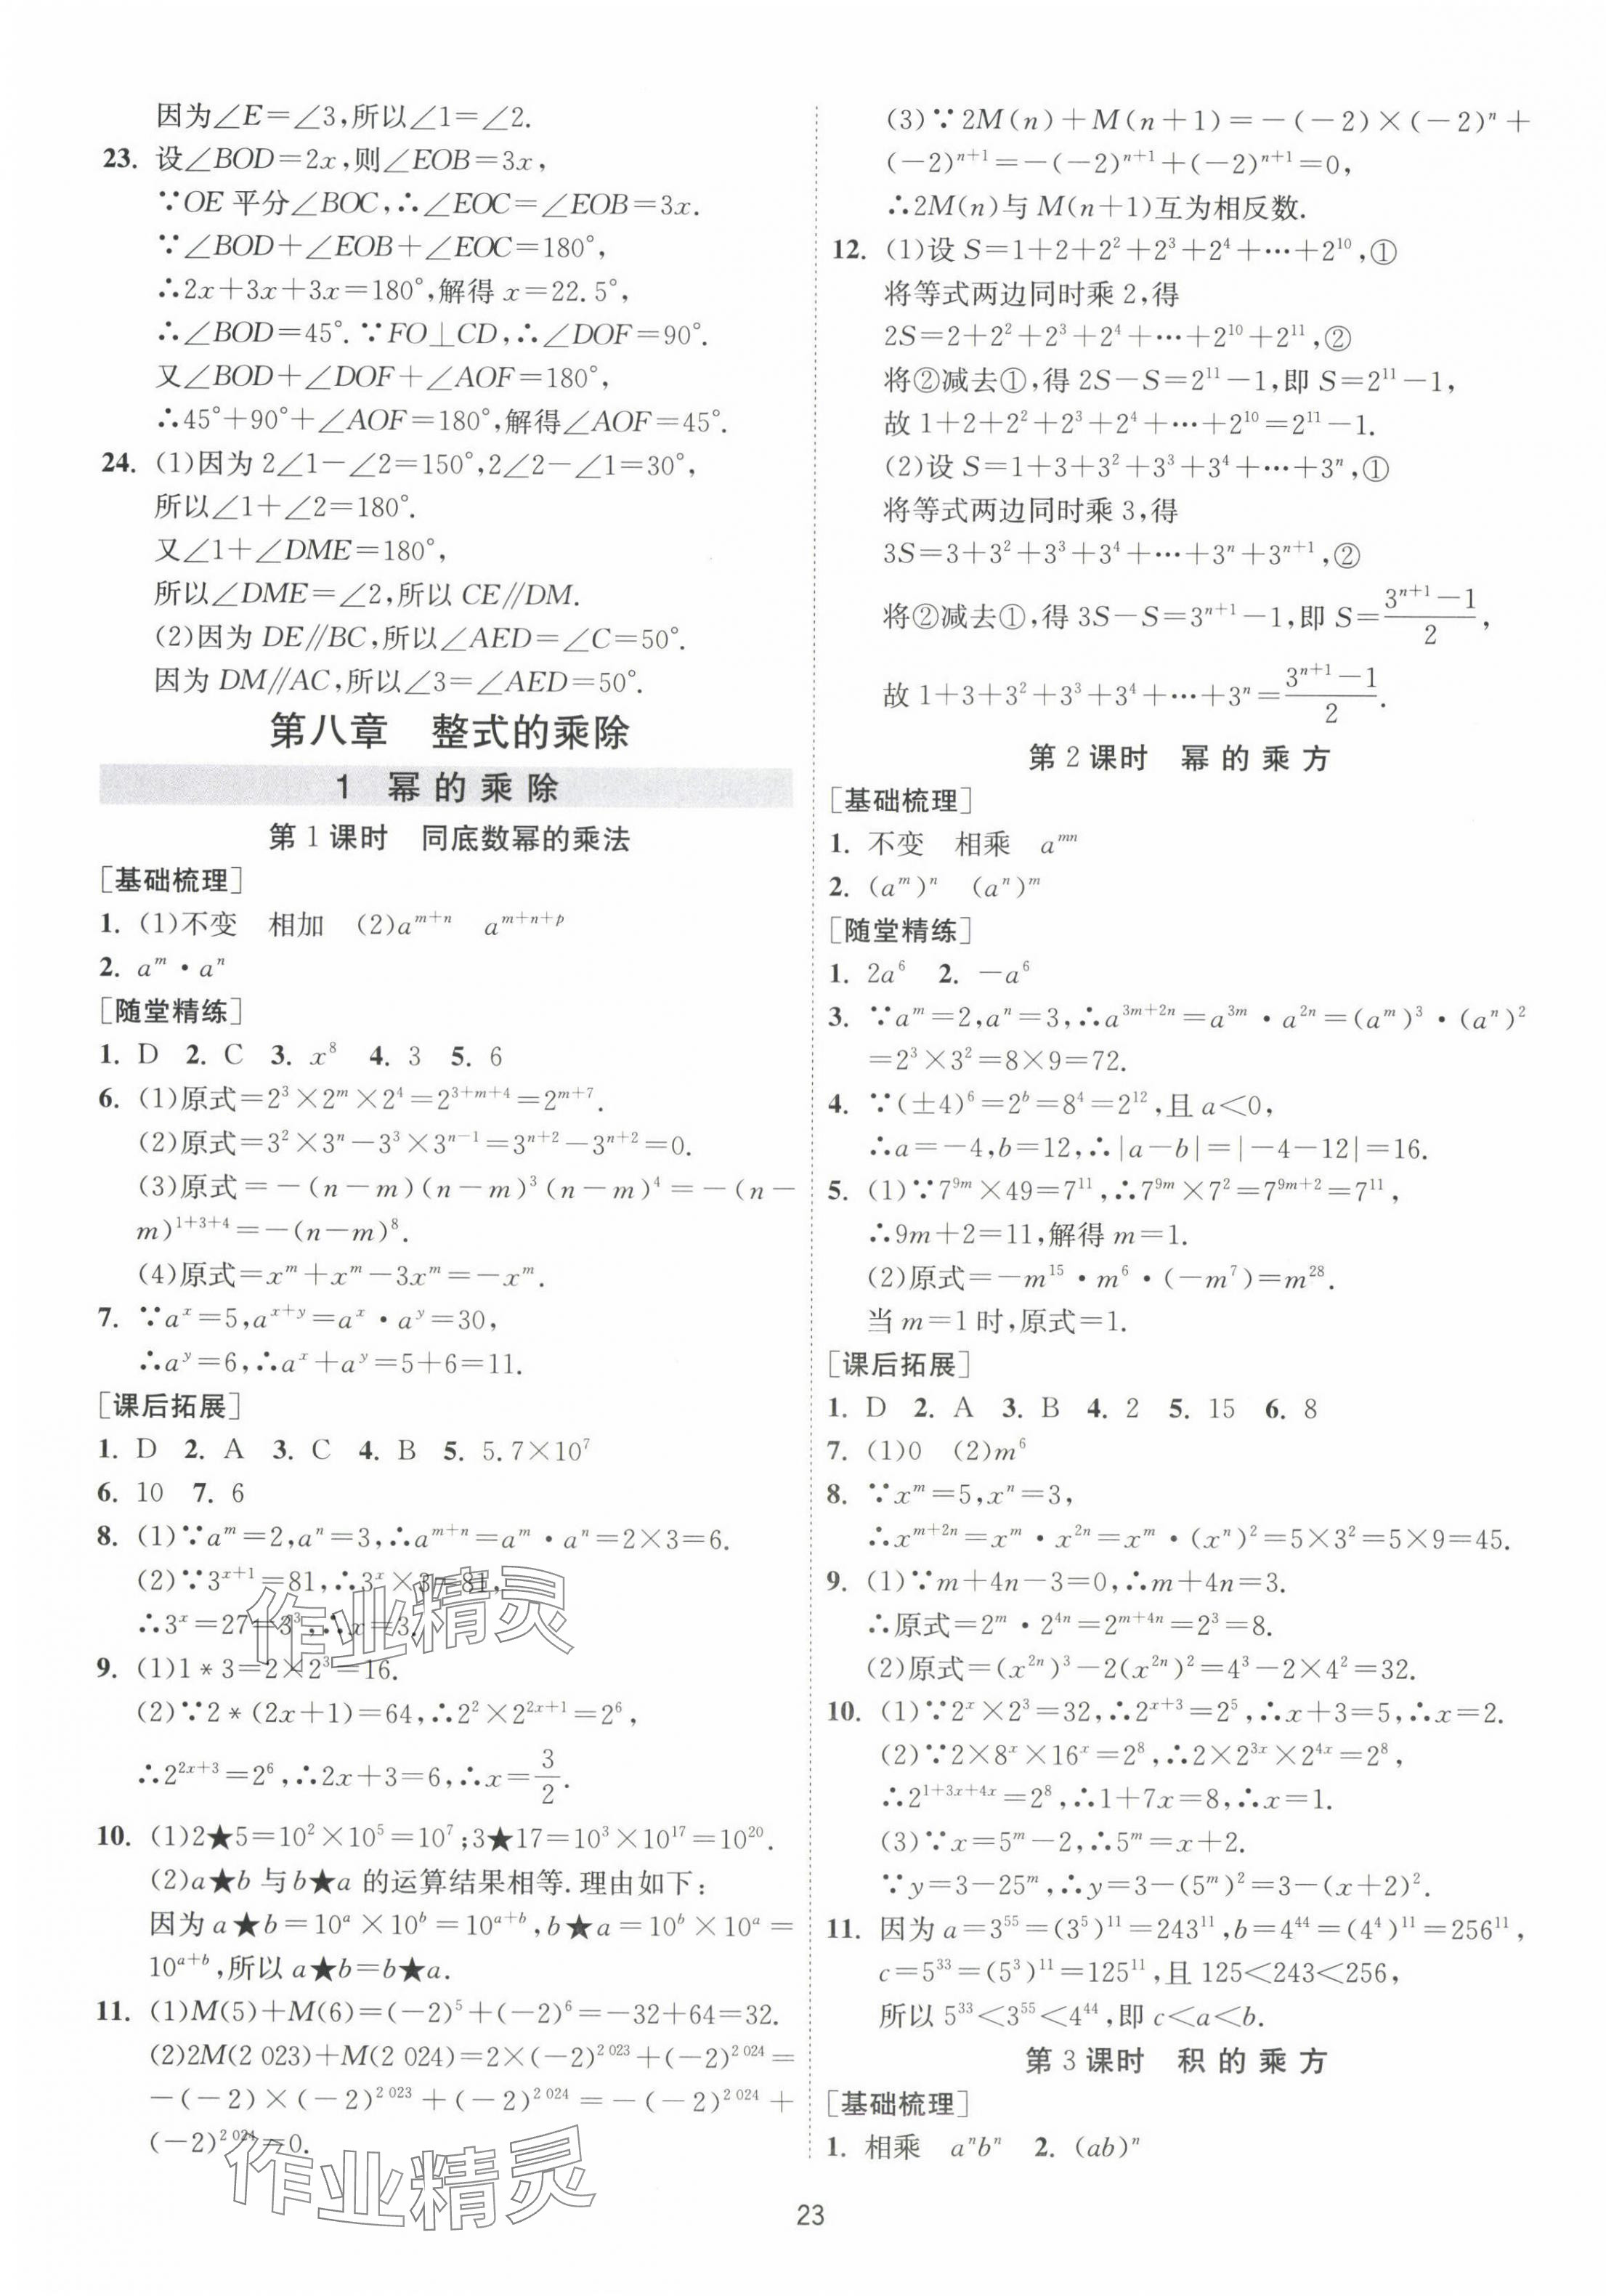 因为∠E=∠3,所以∠1=∠2.
23. 设∠BOD=2x,则∠EOB=3x,
∵OE 平分∠BOC,∴∠EOC=∠EOB=3x.
∵∠BOD+∠EOB+∠EOC=180°,
∴2x+3x+3x=180°,解得 x=22.5°,
∴∠BOD=45°.∵FO⊥CD,∴∠DOF=90°.
又∠BOD+∠DOF+∠AOF=180°,
∴45°+90°+∠AOF=180°,解得∠AOF=45°.
24. (1)因为 2∠1-∠2=150°,2∠2-∠1=30°,
所以∠1+∠2=180°.
又∠1+∠DME=180°,
所以∠DME=∠2,所以 CE∥DM.
(2)因为 DE∥BC,所以∠AED=∠C=50°.
因为 DM∥AC,所以∠3=∠AED=50°.
第八章 整式的乘除
1 幂的乘除
第 1 课时 同底数幂的乘法
[基础梳理]
1. (1)不变 相加 (2)a^{m+n} a^{m+n+p}
2. a^m·a^n
[随堂精练]
1. D 2. C 3. x^8 4. 3 5. 6
6. (1)原式=2^3×2^m×2^4=2^{3+m+4}=2^{m+7}.
(2)原式=3^2×3^n-3^3×3^{n-1}=3^{n+2}-3^{n+2}=0.
(3)原式=-(n-m)(n-m)^3(n-m)^4=-(n-
m)^{1+3+4}=-(n-m)^8.
(4)原式=x^m+x^m-3x^m=-x^m.
7. ∵a^x=5,a^{x+y}=a^x·a^y=30,
∴a^y=6,∴a^x+a^y=5+6=11.
[课后拓展]
1. D 2. A 3. C 4. B 5. 5.7×10^7
6. 10 7. 6
8. (1)∵a^m=2,a^n=3,∴a^{m+n}=a^m·a^n=2×3=6.
(2)∵3^{x+1}=81,∴3^x×3=81,
∴3^x=27=3^3,∴x=3.
9. (1)1*3=2×2^3=16.
(2)∵2*(2x+1)=64,∴2^2×2^{2x+1}=2^6,
∴2^{2x+3}=2^6,∴2x+3=6,∴x=\frac{3}{2}.
10. (1)2★5=10^2×10^5=10^7;3★17=10^3×10^{17}=10^{20}.
(2)a★b 与 b★a 的运算结果相等.理由如下:
因为 a★b=10^a×10^b=10^{a+b},b★a=10^b×10^a=
10^{a+b},所以 a★b=b★a.
11. (1)M(5)+M(6)=(-2)^5+(-2)^6=-32+64=32.
(2)2M(2 023)+M(2 024)=2×(-2)^{2 023}+(-2)^{2 024}=
-(-2)×(-2)^{2 023}+(-2)^{2 024}=-(-2)^{2 024}+
(-2)^{2 024}=0.
(3)∵2M(n)+M(n+1)=-(-2)×(-2)^n+
(-2)^{n+1}=-(-2)^{n+1}+(-2)^{n+1}=0,
∴2M(n)与 M(n+1)互为相反数.
12. (1)设 S=1+2+2^2+2^3+2^4+…+2^{10},①
将等式两边同时乘 2,得
2S=2+2^2+2^3+2^4+…+2^{10}+2^{11},②
将②减去①,得 2S-S=2^{11}-1,即 S=2^{11}-1,
故 1+2+2^2+2^3+2^4+…+2^{10}=2^{11}-1.
(2)设 S=1+3+3^2+3^3+3^4+…+3^n,①
将等式两边同时乘 3,得
3S=3+3^2+3^3+3^4+…+3^n+3^{n+1},②
将②减去①,得 3S-S=3^{n+1}-1,即 S=\frac{3^{n+1}-1}{2},
故 1+3+3^2+3^3+3^4+…+3^n=\frac{3^{n+1}-1}{2}.
第 2 课时 幂的乘方
[基础梳理]
1. 不变 相乘 a^{mn}
2. (a^m)^n (a^n)^m
[随堂精练]
1. 2a^6 2. -a^6
3. ∵a^m=2,a^n=3,∴a^{3m+2n}=a^{3m}·a^{2n}=(a^m)^3·(a^n)^2
=2^3×3^2=8×9=72.
4. ∵(±4)^6=2^b=8^4=2^{12},且 a<0,
∴a=-4,b=12,∴|a-b|=|-4-12|=16.
5. (1)∵7^{9m}×49=7^{11},∴7^{9m}×7^2=7^{9m+2}=7^{11},
∴9m+2=11,解得 m=1.
(2)原式=-m^{15}·m^6·(-m^7)=m^{28}.
当 m=1 时,原式=1.
[课后拓展]
1. D 2. A 3. B 4. 2 5. 15 6. 8
7. (1)0 (2)m^6
8. ∵x^m=5,x^n=3,
∴x^{m+2n}=x^m·x^{2n}=x^m·(x^n)^2=5×3^2=5×9=45.
9. (1)∵m+4n-3=0,∴m+4n=3.
∴原式=2^m·2^{4n}=2^{m+4n}=2^3=8.
(2)原式=(x^{2n})^3-2(x^{2n})^2=4^3-2×4^2=32.
10. (1)∵2^x×2^3=32,∴2^{x+3}=2^5,∴x+3=5,∴x=2.
(2)∵2×8^x×16^x=2^8,∴2×2^{3x}×2^{4x}=2^8,
∴2^{1+3x+4x}=2^8,∴1+7x=8,∴x=1.
(3)∵x=5^m-2,∴5^m=x+2.
∵y=3-25^m,∴y=3-(5^m)^2=3-(x+2)^2.
11. 因为 a=3^{55}=(3^5)^{11}=243^{11},b=4^{44}=(4^4)^{11}=256^{11},
c=5^{33}=(5^3)^{11}=125^{11},且 125<243<256,
所以 5^{33}<3^{55}<4^{44},即 c<a<b.
第 3 课时 积的乘方
[基础梳理]
1. 相乘 a^nb^n 2. (ab)^n
23
作业精灵
作业精灵